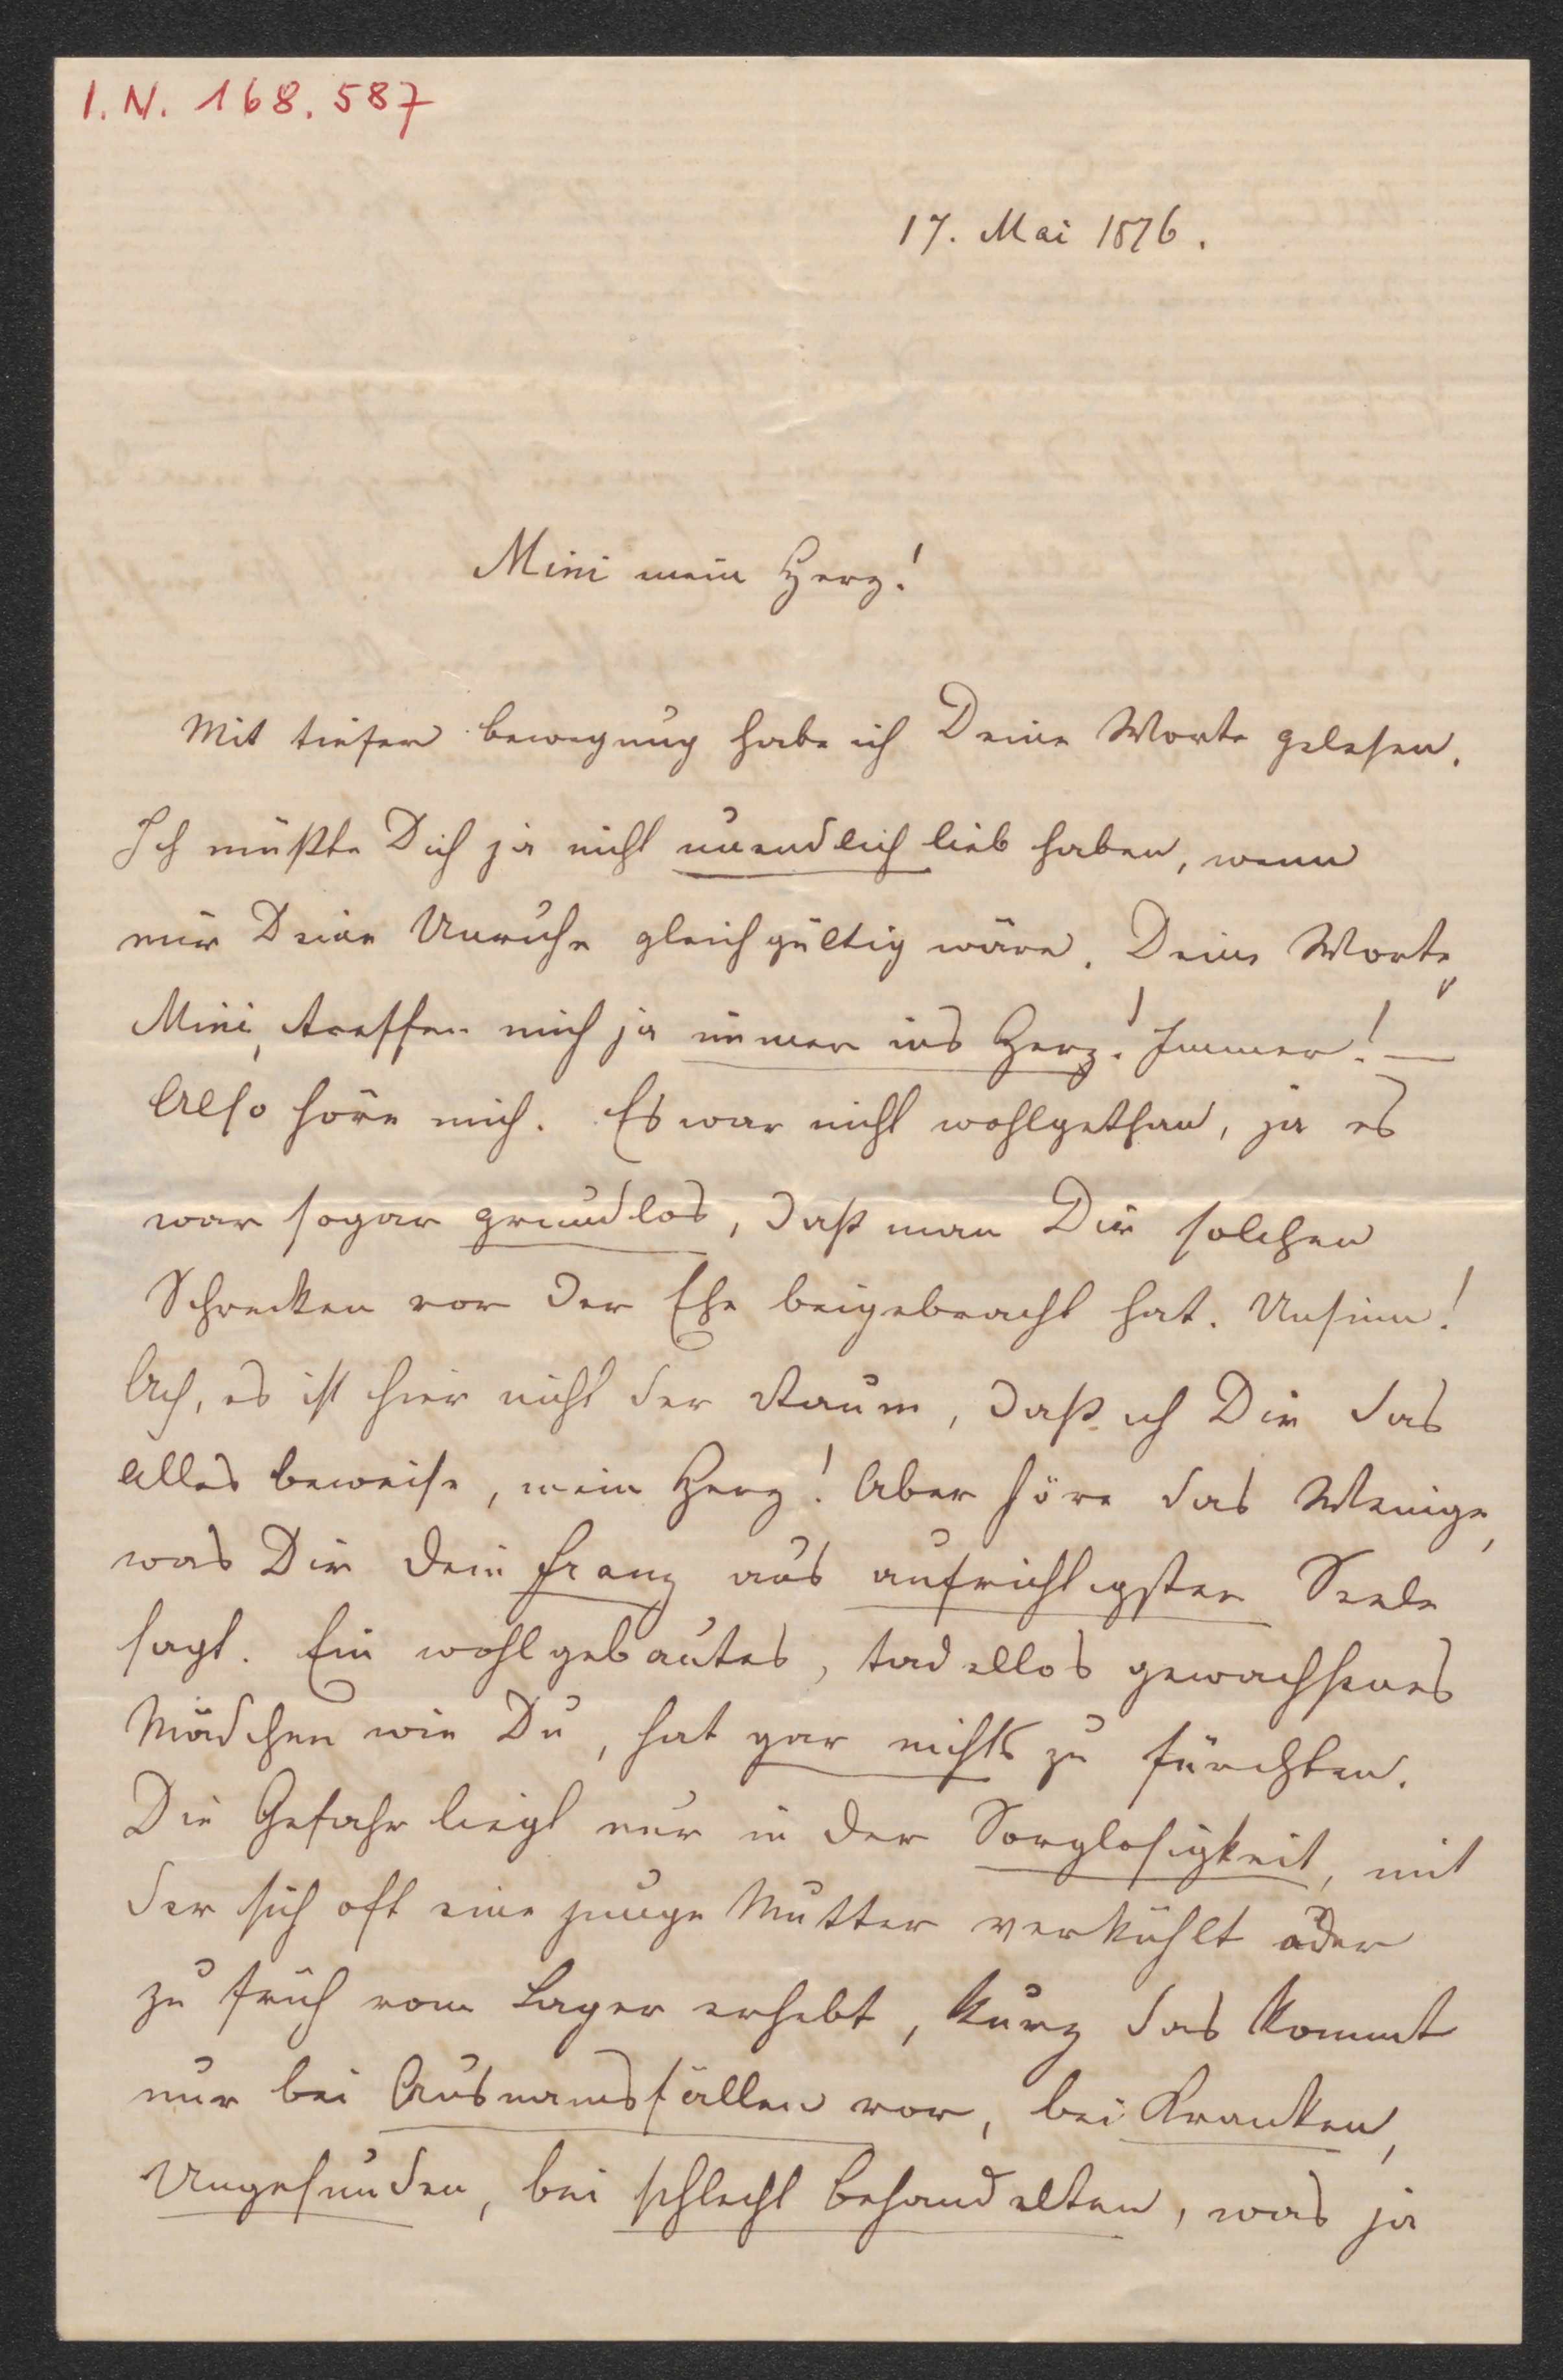 I.N. 168.587
17. Mai 1876.
Mini mein Herz!
Mit tiefer Bewegung habe ich Deine Worte gelesen.
Ich müßte Dich ja nicht unendlich lieb haben, wenn
mir Deine Unruhe gleichgültig wäre. Deine Worte,
Mini, treffen mich ja immer ins Herz! Immer! —
Also höre mich. Es war nicht wohlgethan, ja es
war sogar grundlos, daß man Dir solchen
Schrecken vor der Ehe beigebracht hat. Unsinn!
Ach, es ist hier nicht der Raum, daß ich Dir das
Alles beweise, mein Herz! Aber höre das Wenige,
was Dir Dein Franz aus aufrichtigster Seele
sagt. Ein wohlgebautes, tadellos gewachsenes
Mädchen wie Du, hat gar nichts zu fürchten.
Die Gefahr liegt nur in der Sorglosigkeit, mit
der sich oft eine junge Mutter verkühlt oder
zu früh vom Lager erhebt, kurz das kommt
nur bei Ausnamsfällen vor, bei Kranken,
Ungesunden, bei schlecht behandelten, was ja